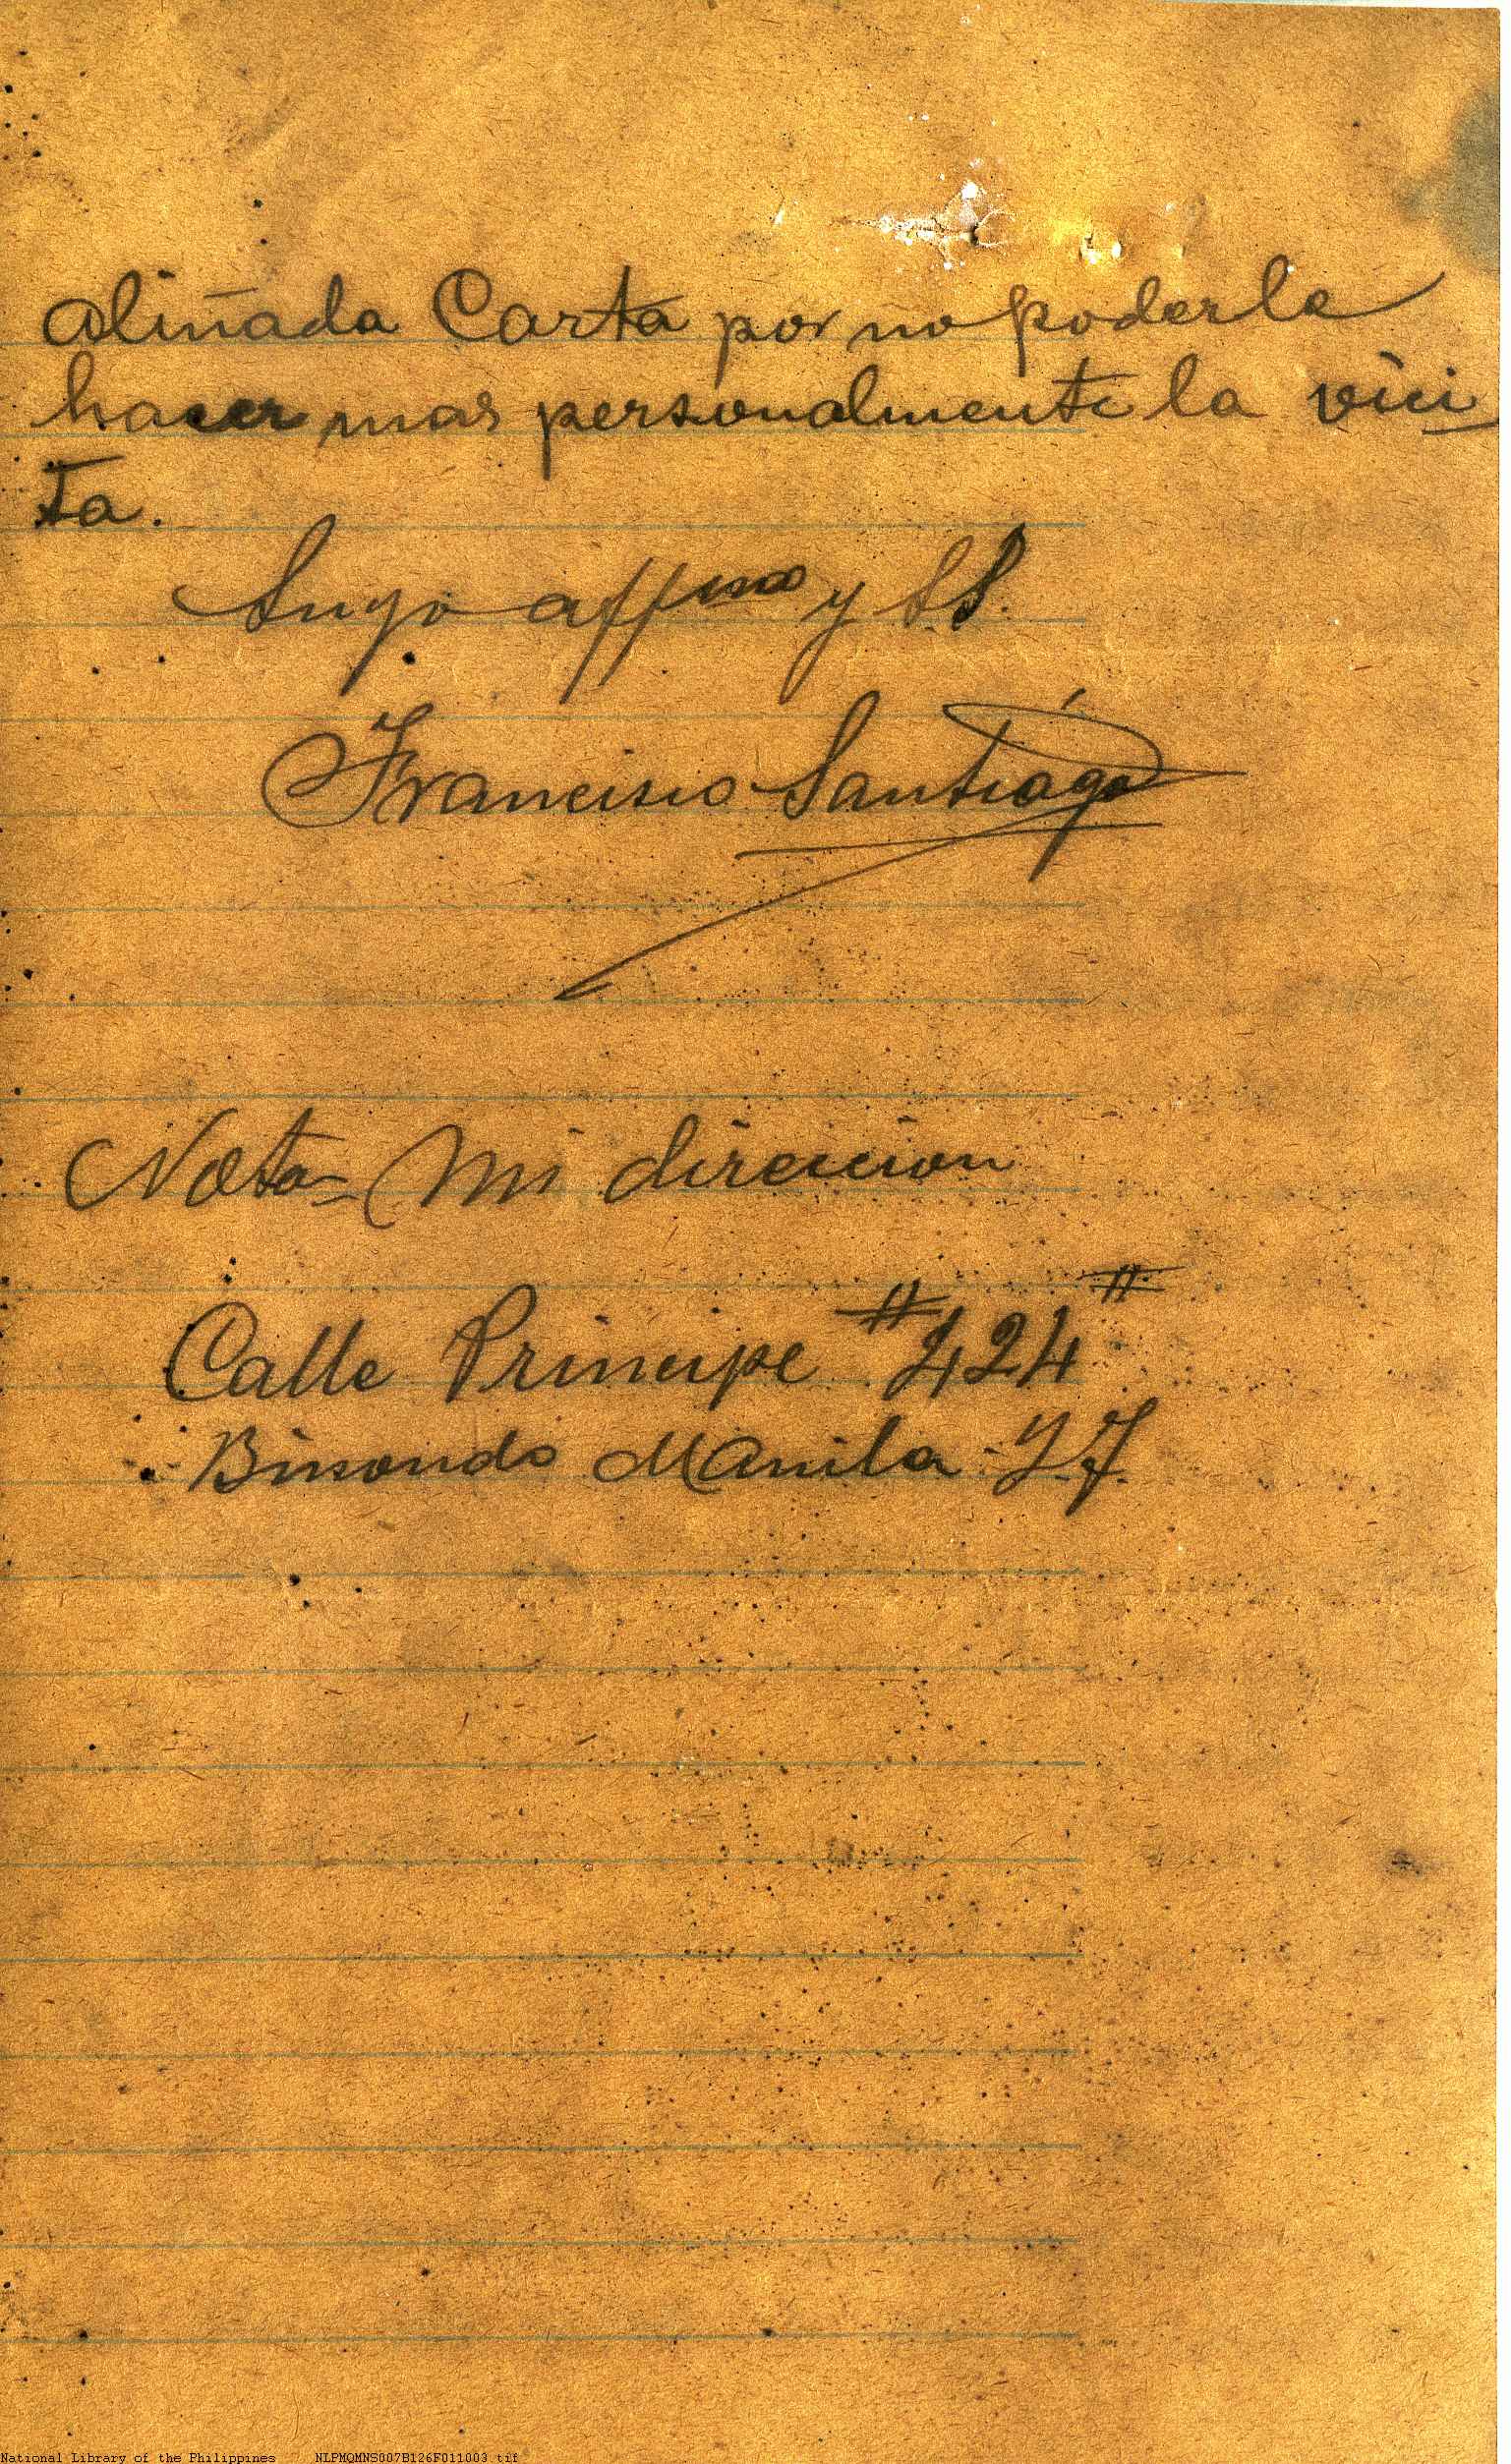 aliñada Carta por no poderle
hacer mas personalmente la vici
ta.
Suyo affmo y S.S.
Francisco Santiago
Nota = Mi direccion
Calle Principe #424#
Binondo Manila Y.F.
National Library of the Philippines NLPMQMNS007B126F011003.tif